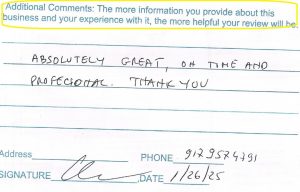 Additional Comments: The more information you provide about this
business and your experience with it, the more helpful your review will be.
ABSOLUTELY GREAT, ON TIME AND
PROFECIONAL. THANK YOU
Address
PHONE 9179574791
SIGNATURE DATE 1/26/25